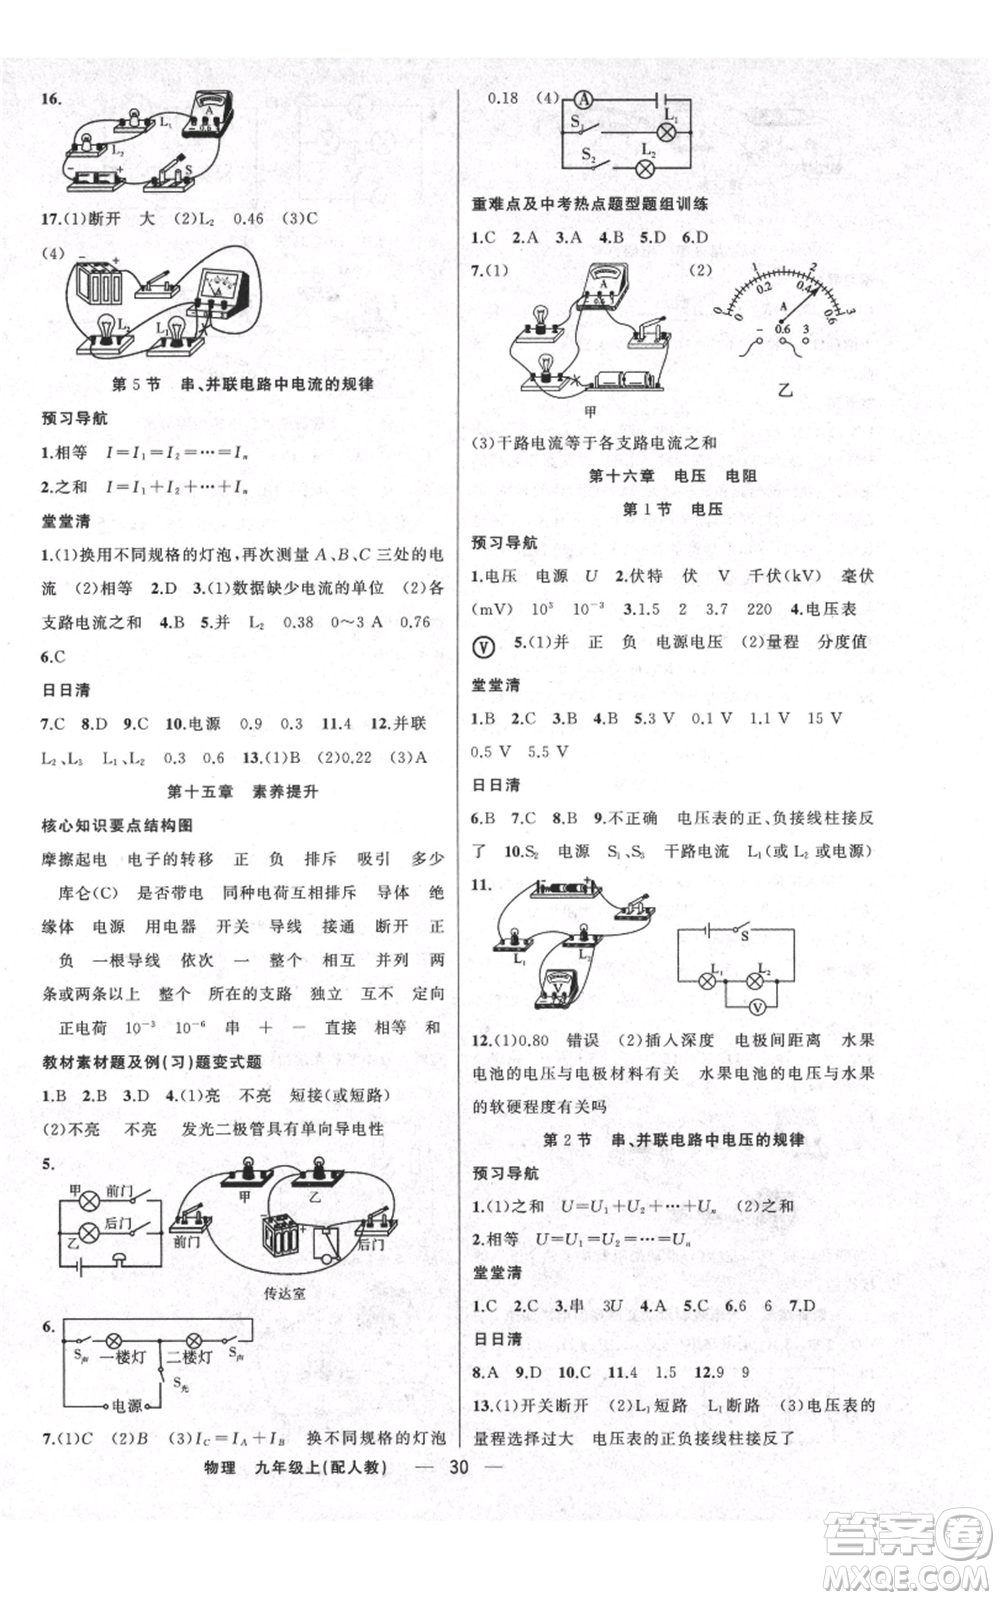 16.
L₁
L₂
A
S
17.(1)断开 大 (2)L₂ 0.46 (3)C
(4)
L₂
L₁
A
第 5 节 串、并联电路中电流的规律
预习导航
1.相等 I=I₁=I₂=…=Iₙ
2.之和 I=I₁+I₂+…+Iₙ
堂堂清
1.(1)换用不同规格的灯泡,再次测量 A、B、C 三处的电
流 (2)相等 2.D 3.(1)数据缺少电流的单位 (2)各
支路电流之和 4.B 5.并 L₂ 0.38 0～3 A 0.76
6.C
日日清
7.C 8.D 9.C 10.电源 0.9 0.3 11.4 12.并联
L₂、L₃ L₁、L₂ 0.3 0.6 13.(1)B (2)0.22 (3)A
第十五章 素养提升
核心知识要点结构图
摩擦起电 电子的转移 正 负 排斥 吸引 多少
库仑(C) 是否带电 同种电荷互相排斥 导体 绝
缘体 电源 用电器 开关 导线 接通 断开 正
负 一根导线 依次 一 整个 相互 并列 两
条或两条以上 整个 所在的支路 独立 互不 定向
正电荷 10⁻³ 10⁻⁶ 串 + − 直接 相等 和
教材素材题及例(习)题变式题
1.B 2.B 3.D 4.(1)亮 不亮 短接(或短路)
(2)不亮 不亮 发光二极管具有单向导电性
5.
甲 前门
乙 后门
甲 乙
前门 后门
传达室
6.
S声 一楼灯 二楼灯 S声
S光
电源
7.(1)C (2)B (3)I_C=I_A+I_B 换不同规格的灯泡
0.18 (4)
A
S₁ L₁
S₂ L₂
重难点及中考热点题型题组训练
1.C 2.A 3.A 4.B 5.D 6.D
7.(1) (2)
甲
0 1 2 3
0 0.2 0.4 0.6
A
− 0.6 3
乙
(3)干路电流等于各支路电流之和
第十六章 电压 电阻
第 1 节 电压
预习导航
1.电压 电源 U 2.伏特 伏 V 千伏(kV) 毫伏
(mV) 10³ 10⁻³ 3.1.5 2 3.7 220 4.电压表
V 5.(1)并 正 负 电源电压 (2)量程 分度值
堂堂清
1.B 2.C 3.B 4.B 5.3 V 0.1 V 1.1 V 15 V
0.5 V 5.5 V
日日清
6.B 7.C 8.B 9.不正确 电压表的正、负接线柱接反
了 10.S₂ 电源 S₁、S₃ 干路电流 L₁(或 L₂或电源)
11.
L₁ L₂
V
S
L₁ L₂
V
12.(1)0.80 错误 (2)插入深度 电极间距离 水果
电池的电压与电极材料有关 水果电池的电压与水果
的软硬程度有关吗
第 2 节 串、并联电路中电压的规律
预习导航
1.(1)之和 U=U₁+U₂+…+Uₙ (2)之和
2.相等 U=U₁=U₂=…=Uₙ
堂堂清
1.C 2.C 3.串 3U 4.A 5.C 6.6 6 7.D
日日清
8.A 9.D 10.C 11.4 1.5 12.9 9
13.(1)开关断开 (2)L₁短路 L₁断路 (3)电压表的
量程选择过大 电压表的正负接线柱接反了
物理 九年级上(配人教) — 30 —
答案卷
MXQE.COM